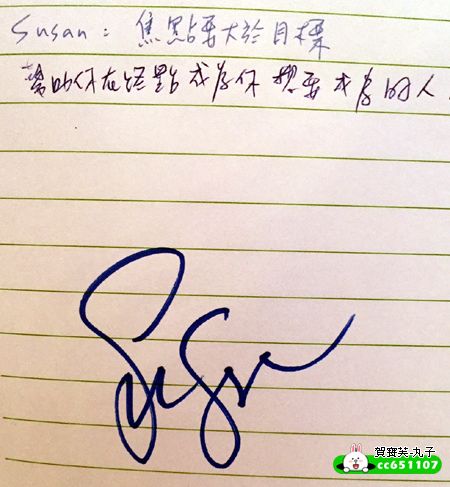 Susan: 焦點要大於目標
幫助你在終點成為你想要成為的人.
Susan
賀寶芙-丸子
cc651107